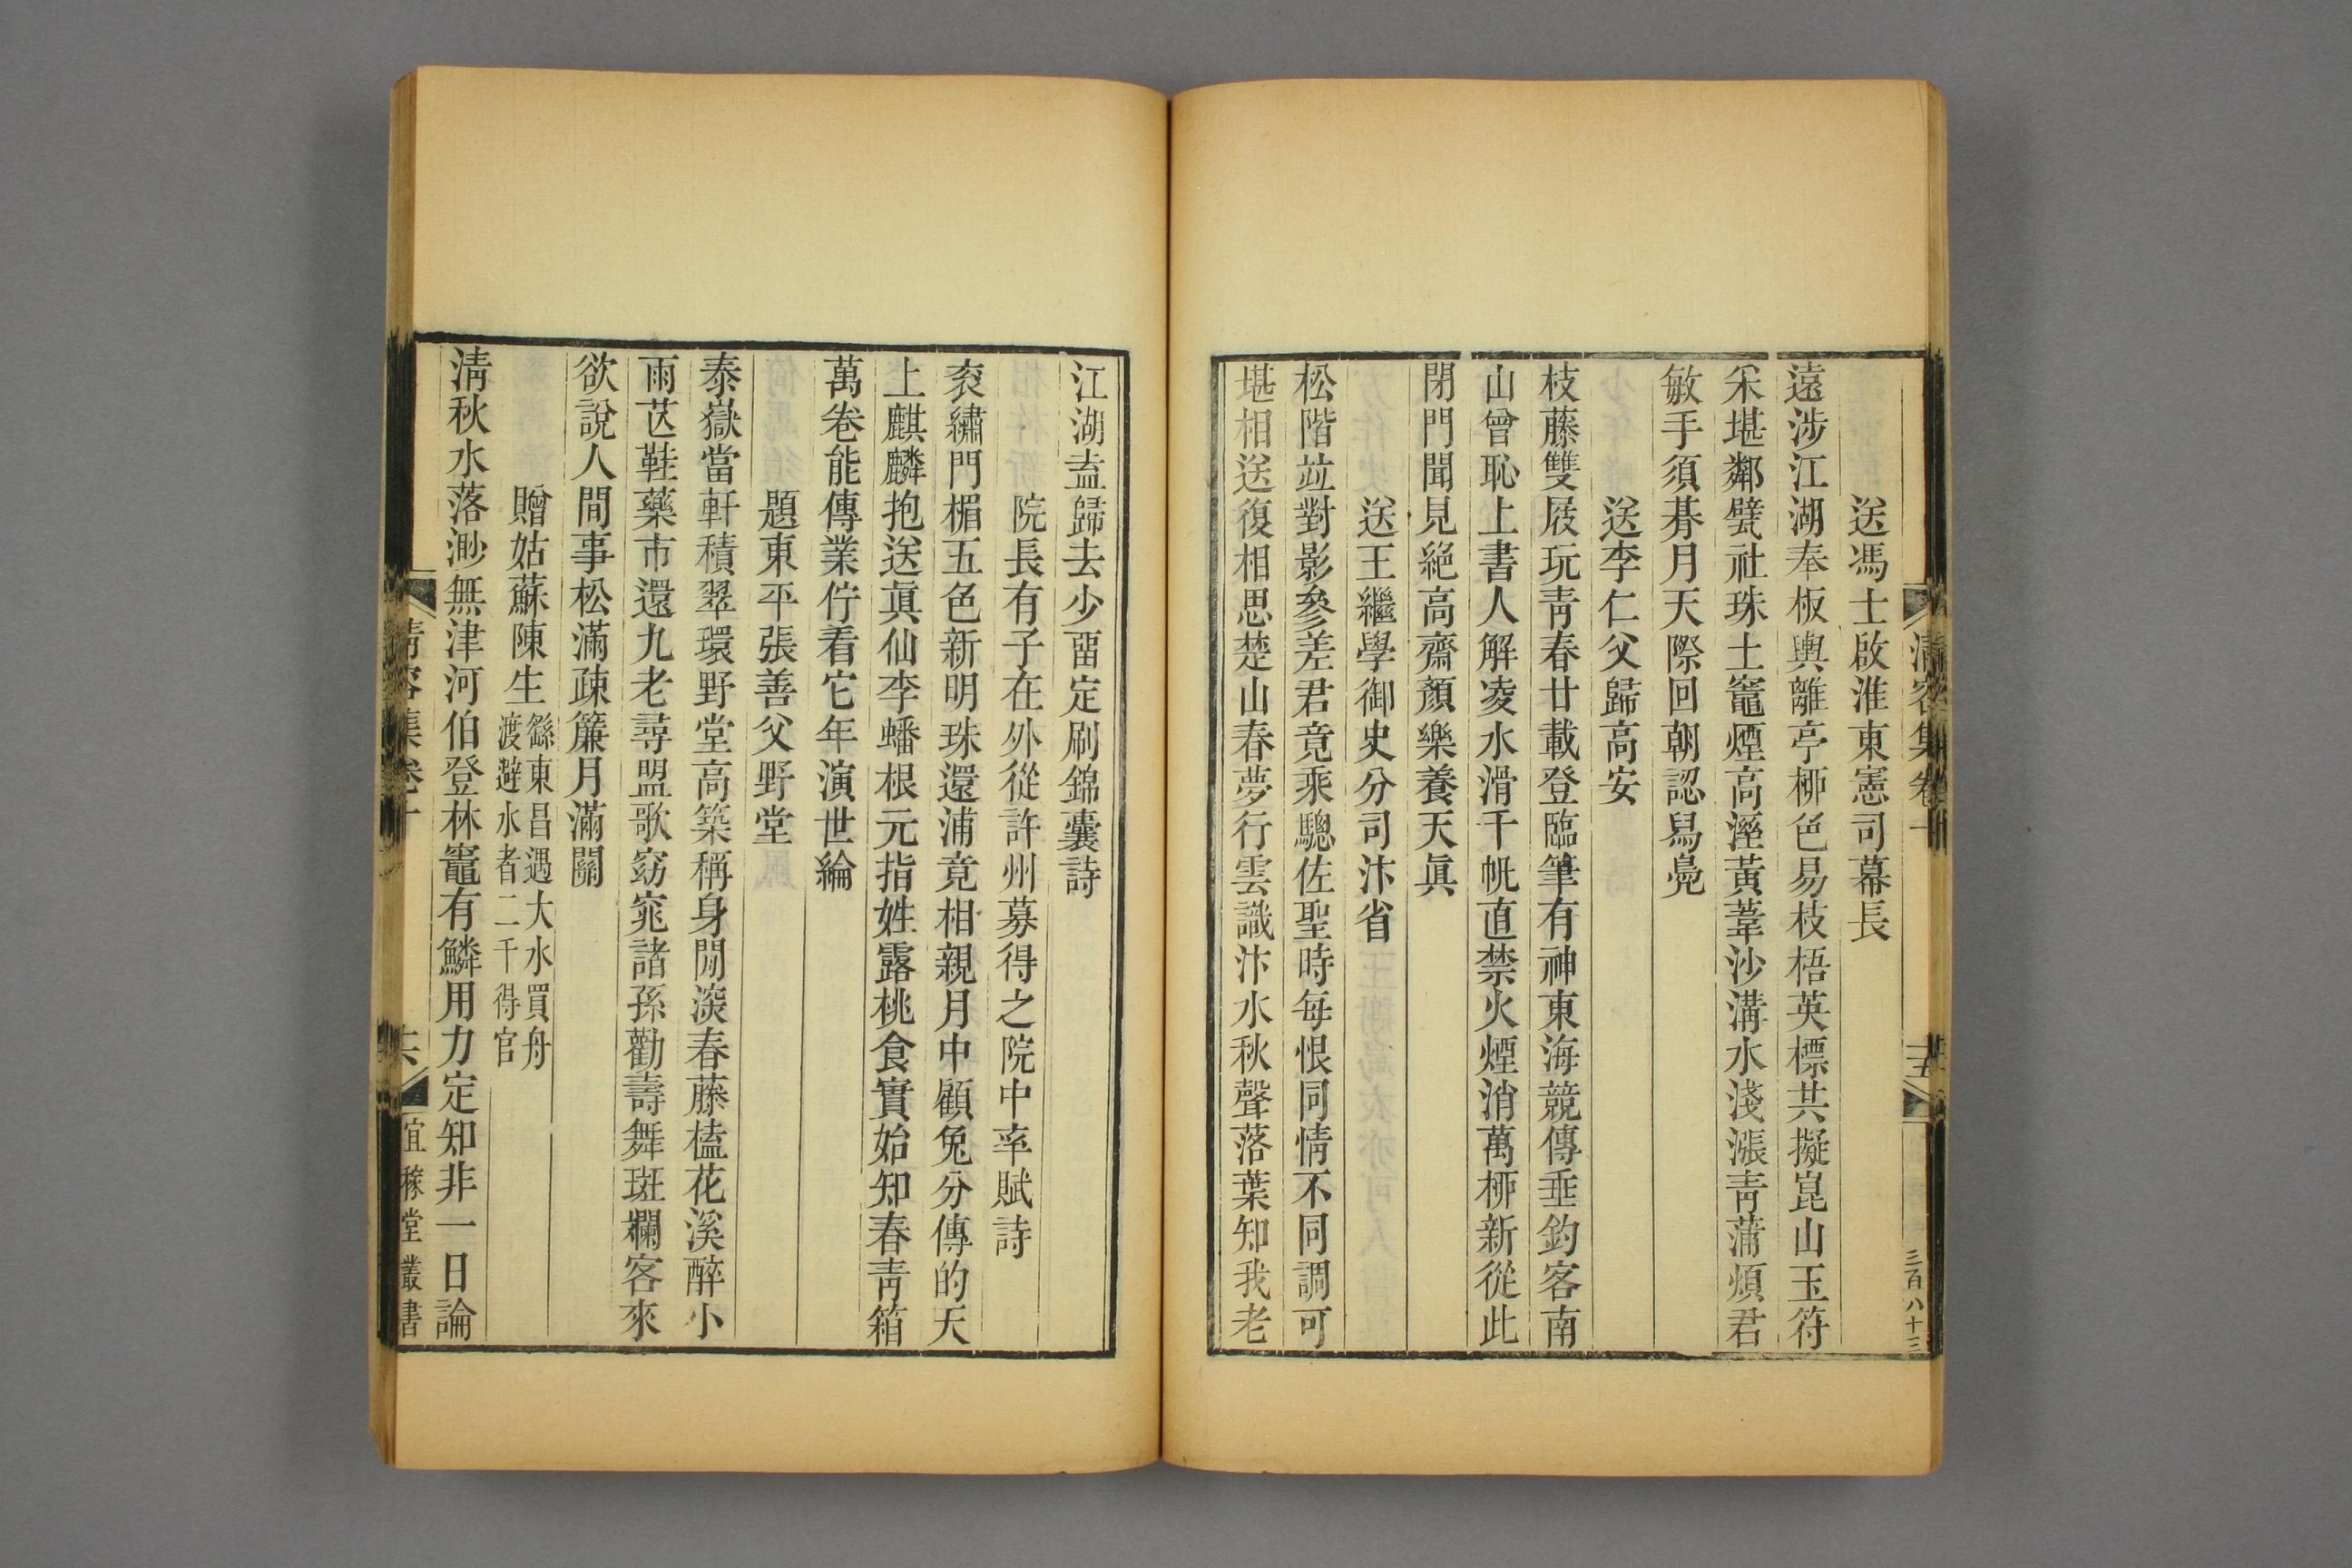 送馮士啟淮東憲司幕長
遠涉江湖奉板輿離亭栁色易枝梧英標共擬崑山玉符
采堪鄰甓社珠土竈煙高溼黃葦沙溝水淺漲靑蒲煩君
敏手須朞月天際回朝認舃鳧
送李仁父歸高安
枝藤雙屐玩靑春廿載登臨筆有神東海競傳垂釣客南
山曾恥上書人解凌水滑千帆直禁火煙消萬栁新從此
閉門聞見絕高齋顏樂養天眞
送王繼學御史分司汴省
松階竝對影參差君竟乘驄佐聖時每恨同情不同調可
堪相送復相思楚山春夢行雲識汴水秋聲落葉知我老
清容集卷十
十五
三百八十三
江湖盍歸去少畱定刷錦囊詩
院長有子在外從許州募得之院中率賦詩
衮繡門楣五色新明珠還浦竟相親月中顧兔分傳的天
上麒麟抱送眞仙李蟠根元指姓露桃食實始知春靑箱
萬卷能傳業佇看它年演世綸
題東平張善父野堂
泰嶽當軒積翠環野堂高築稱身閒深春藤榼花溪醉小
雨芒鞋藥市還九老尋盟歌窈窕諸孫勸壽舞斑斕客來
欲說人間事松滿疎簾月滿關
贈姑蘇陳生
繇東昌遇大水買舟
渡避水者二千得官
淸秋水落渺無津河伯登林竈有鱗用力定知非一日論
清容集卷十
十六
宜稼堂叢書